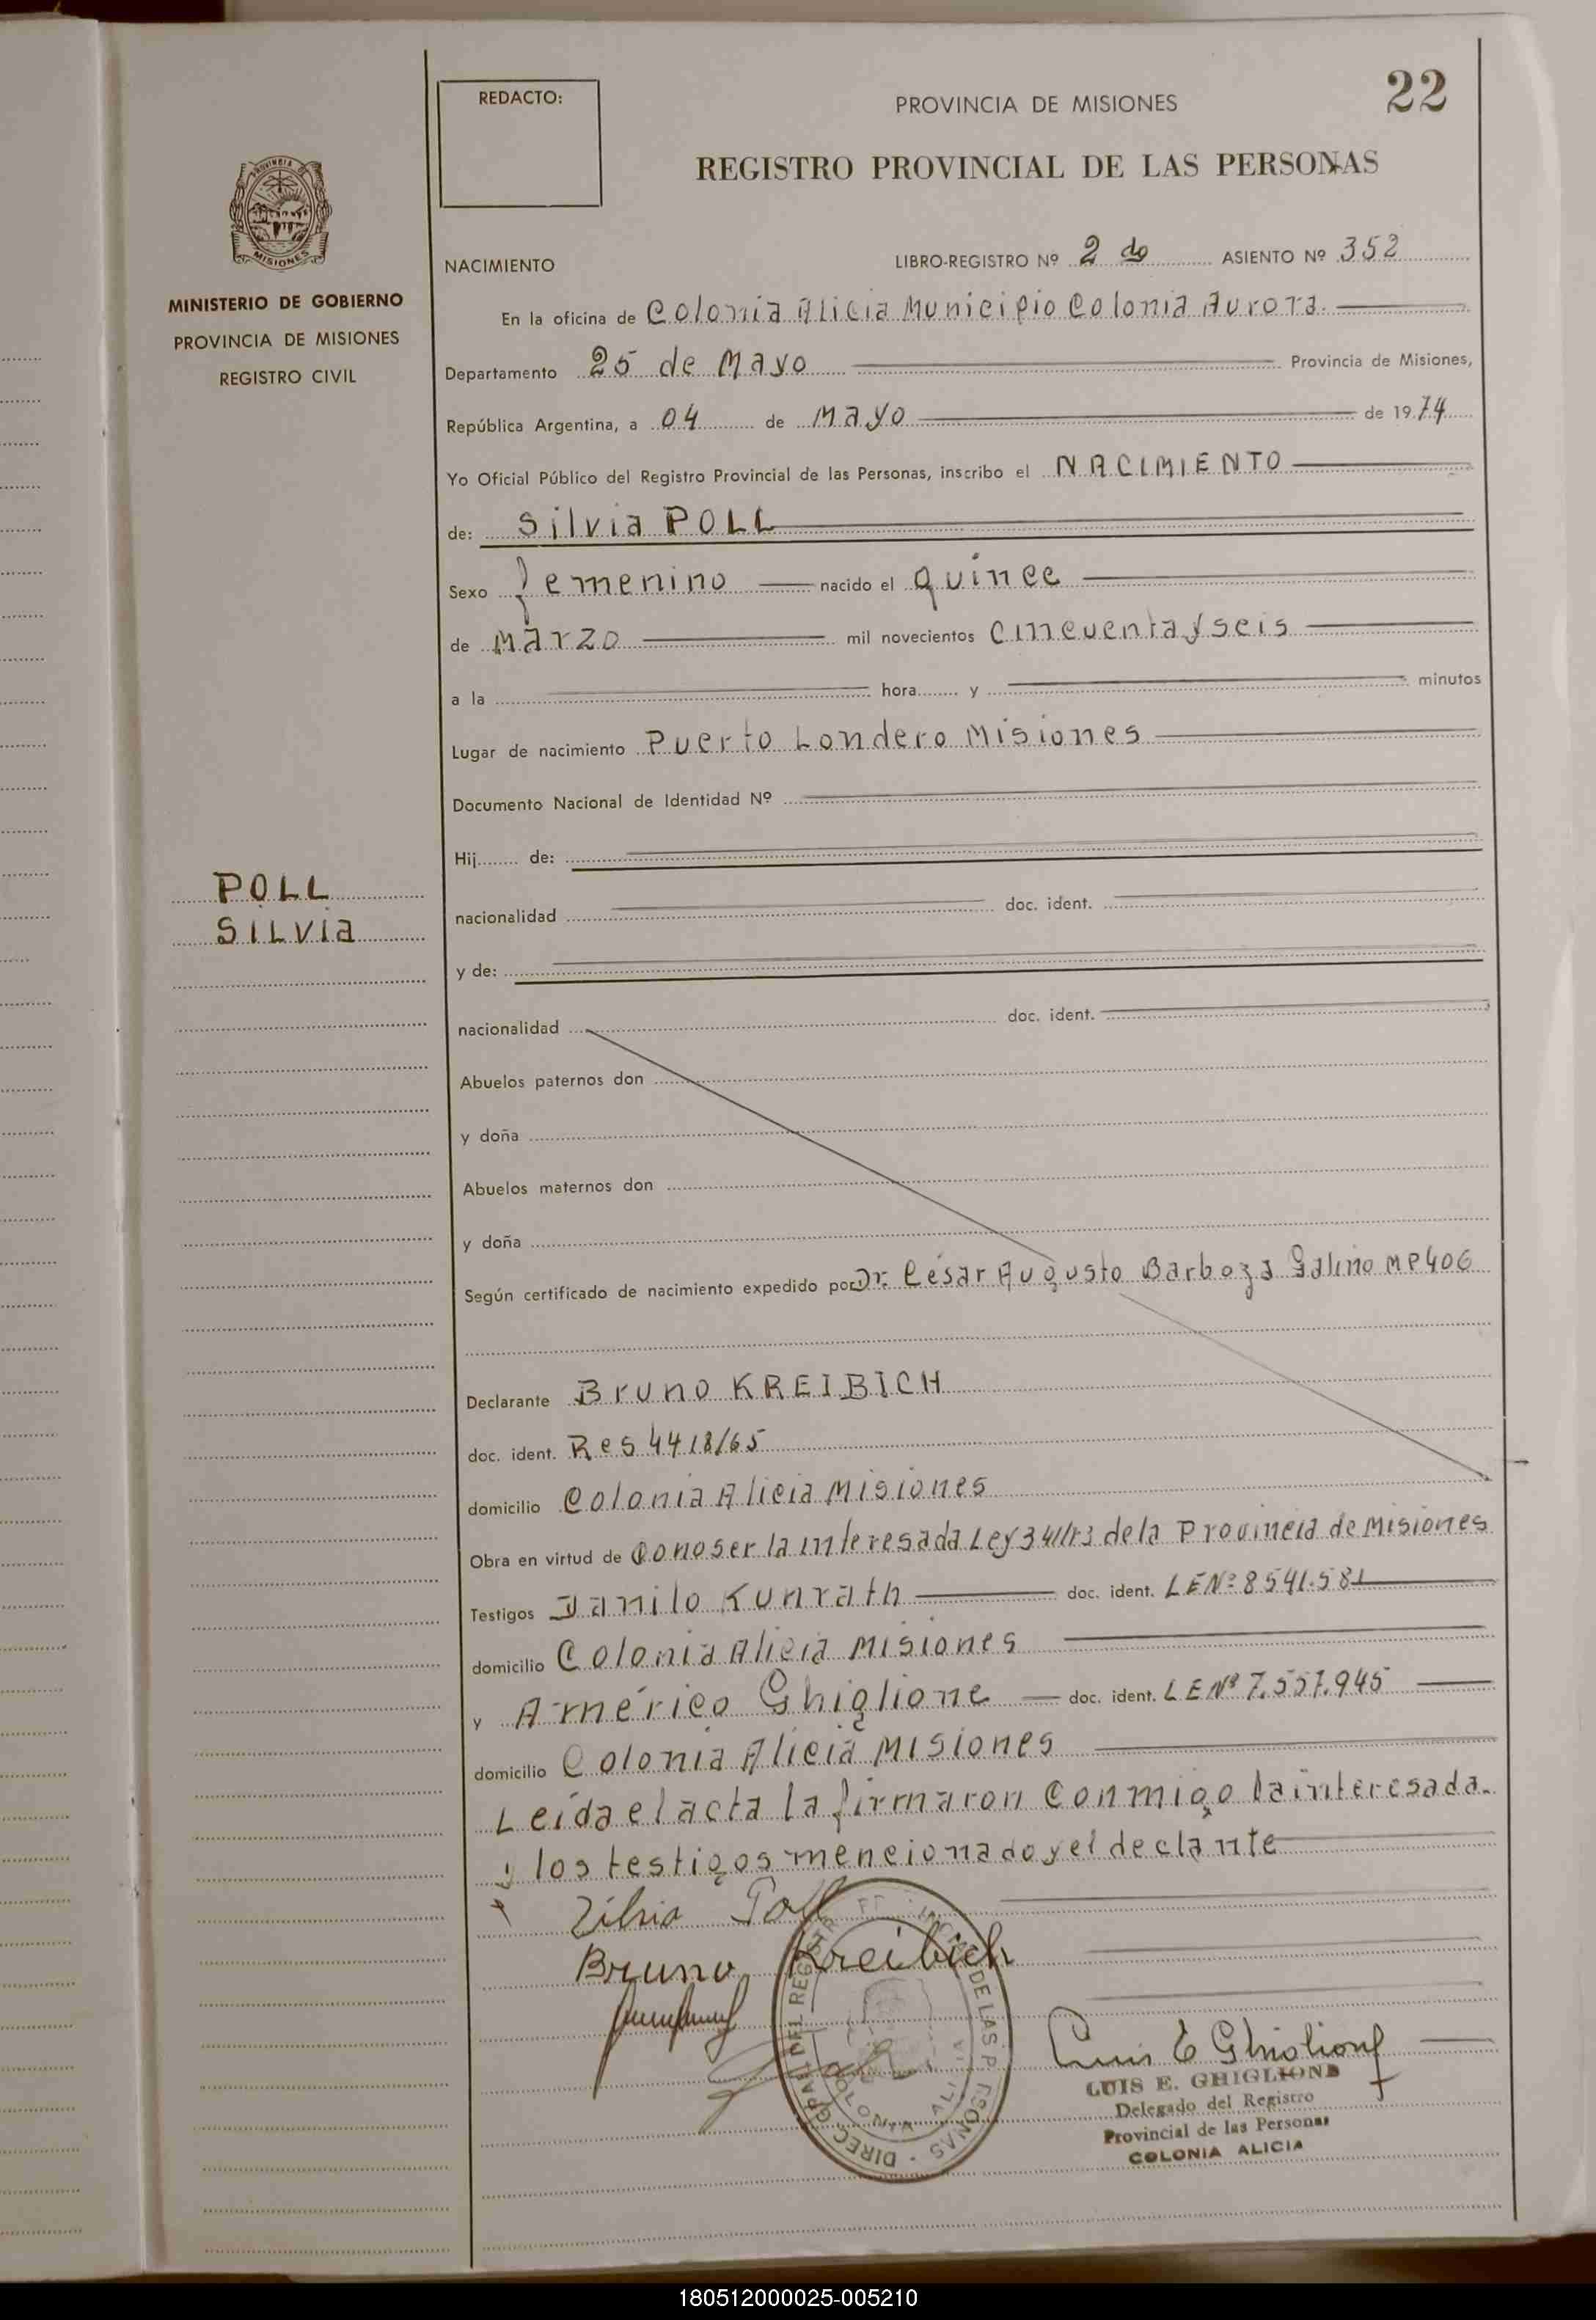 22
REDACTO:
PROVINCIA DE MISIONES
REGISTRO PROVINCIAL DE LAS PERSONAS
MISIONES
MINISTERIO DE GOBIERNO
PROVINCIA DE MISIONES
REGISTRO CIVIL
POLL
SILVIA
NACIMIENTO LIBRO-REGISTRO Nº 2 do ASIENTO Nº 352
En la oficina de Colonia Alicia Municipio Colonia Aurora.
Departamento 25 de Mayo Provincia de Misiones,
República Argentina, a 04 de Mayo de 1974
Yo Oficial Público del Registro Provincial de las Personas, inscribo el NACIMIENTO
de: Silvia POLL
Sexo femenino nacido el quince
de Marzo mil novecientos cincuenta y seis
a la hora y minutos
Lugar de nacimiento Puerto Londero Misiones
Documento Nacional de Identidad Nº
Hij de:
nacionalidad doc. ident.
y de:
nacionalidad doc. ident.
Abuelos paternos don
y doña
Abuelos maternos don
y doña
Según certificado de nacimiento expedido por Dr. César Augusto Barboza Galino MP406
Declarante Bruno KREIBICH
doc. ident. Res 4418/65
domicilio Colonia Alicia Misiones
Obra en virtud de Conoser la interesada Ley de la Provincia de Misiones
Testigos Danilo Kunrath doc. ident. LE Nº 8541.581
domicilio Colonia Alicia Misiones
y Américo Ghiglione doc. ident. LE Nº 7.557.945
domicilio Colonia Alicia Misiones
Leída el acta la firmaron Conmigo la interesada.
y los testigos mencionado y el declante
Zilvia Poll
Bruno Kreibich
DIREC. GRAL. DEL REGISTR DE LAS PERSONAS
COLONIA ALICIA
Luis E Ghiglione
LUIS E. GHIGLIONE
Delegado del Registro
Provincial de las Personas
COLONIA ALICIA
180512000025-005210